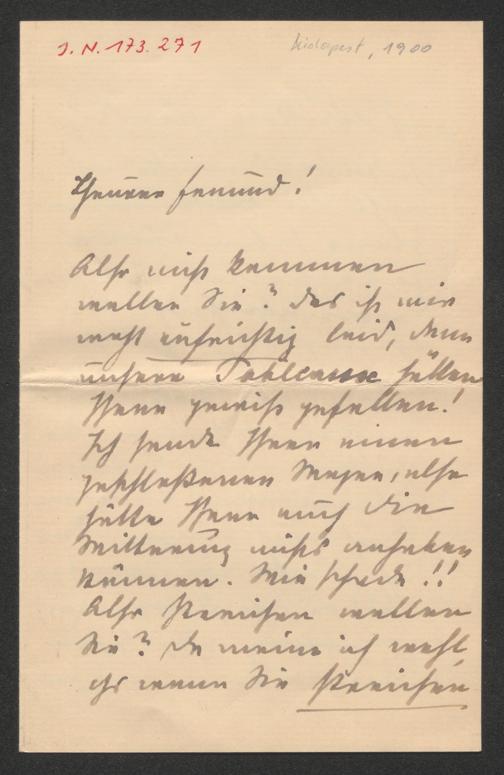 I. N. 173.271
Budapest, 1900
Theurer Freund!
Also nicht kommen
wollen Sie? das ist mir
recht aufrichtig leid, denn
unsere Tableaux hätten
Ihnen gewiss gefallen!
Ich sende Ihnen einen
geschloßenen Wagen, also
hätte Ihnen auch die
Witterung nichts anhaben
können. Wie schade!!
Also streichen wollen
Sie? da meine ich wohl,
ja wenn Sie streichen